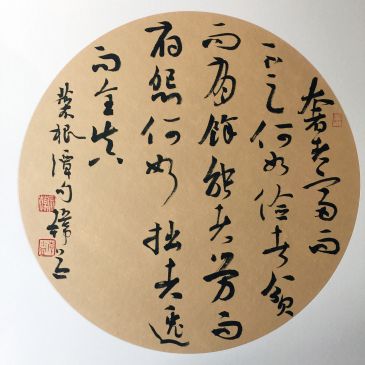 奢者富而
不足何如儉者貧
而有餘能者勞而
府怨何如拙者逸
而全真
菜根潭句